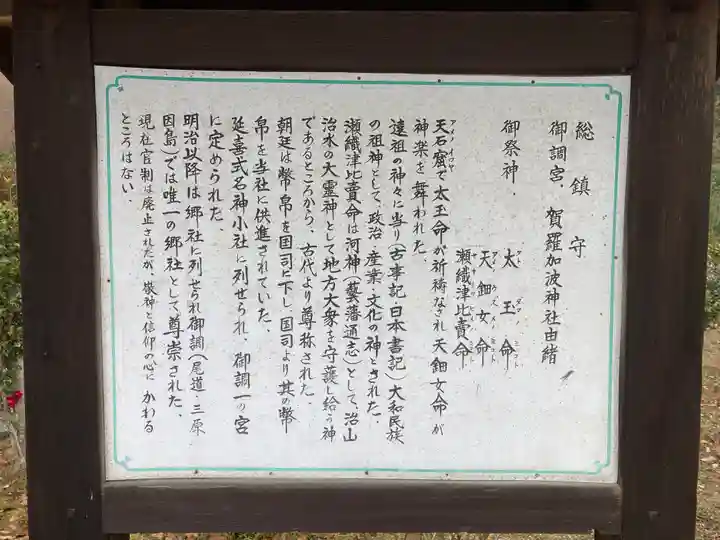 総鎮守
御調宮 賀羅加波神社由緒
御祭神 太玉命
天鈿女命
瀬織津比賣命
天石窟で太玉命が祈祷なされ天鈿女命が
神楽を舞われた。
遠祖の神々に当り(古事記・日本書記)大和民族
の祖神として、政治・産業・文化の神とされた.
瀬織津比賣命は河神(藝藩通志)として、治山
治水の大霊神として地方大衆を守護し給う神
であるところから、古代より尊称された.
朝廷は幣帛を国司に下し国司より其の幣
帛を当社に供進されていた.
延喜式名神小社に列せられ、御調一の宮
に定められた.
明治以降は郷社に列せられ御調(尾道・三原
因島)では唯一の郷社として尊崇された.
現社官制は廃止されたが、敬神と信仰の心に かわる
ところはない.